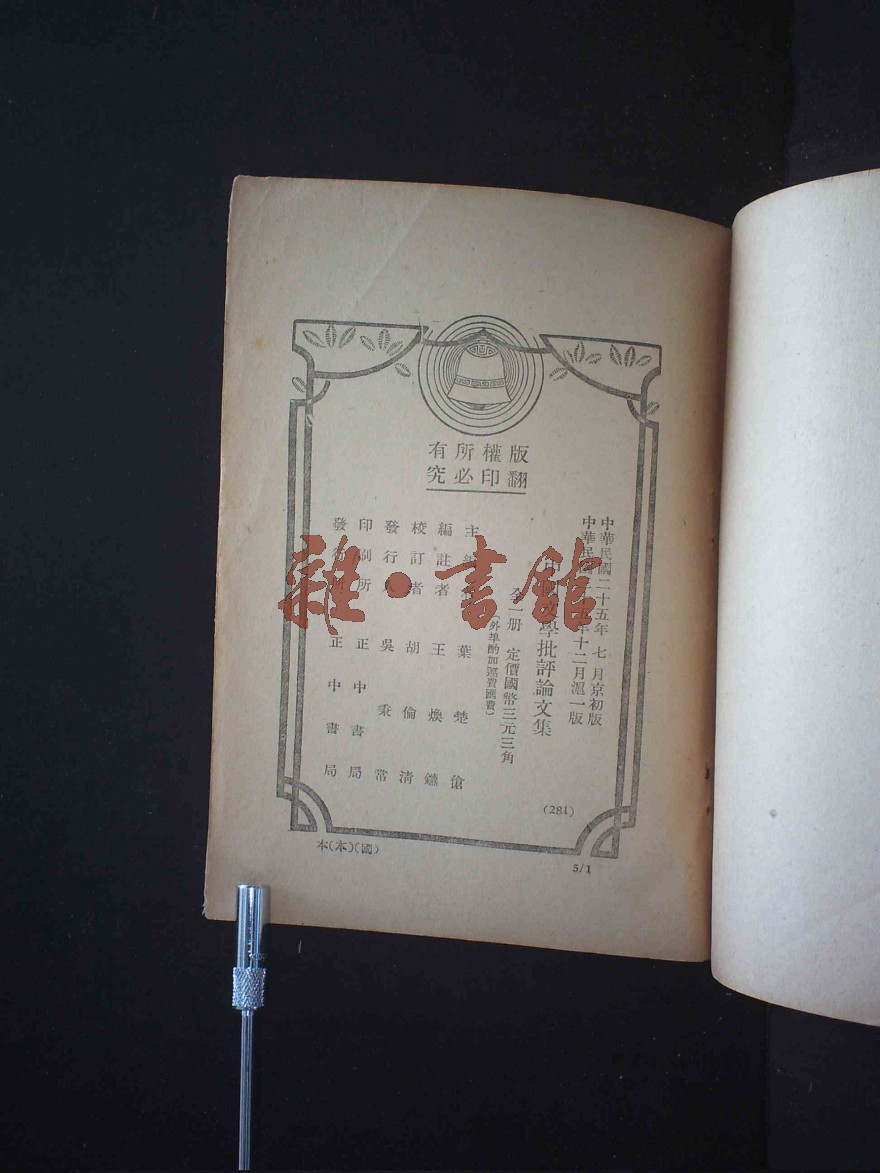 版權所有
翻印必究
中華民國二十五年 七 月京初版
中華民國 十五年十二月滬一版
文學批評論文集
全一册 定價國幣三元三角
(外埠酌加運費匯費)
主編 葉楚傖
編註者 王煥鑣
校訂者 胡倫清
發行 吳秉常
印刷所 正中書局
發行 正中書局
(281)
本(本)(國)
5/1
雜·書館